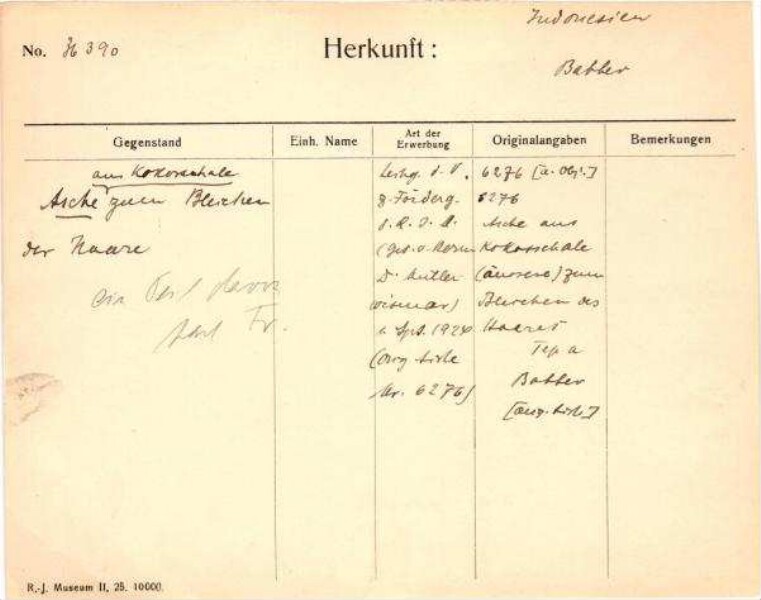 Indonesien
No. H 390
Herkunft:
Babber
Gegenstand
Einh. Name
Art der Erwerbung
Originalangaben
Bemerkungen
aus Kokosschale
Asche zum Bleichen
der Haare
ein Teil davon
Fr.
Leihg. d. V.
z. Förderg.
d. R. J. M.
(ges. v.
Dr.
Wismar)
Spt. 1924
(Org. Liste
Nr. 6276)
6276 [a. Obj.]
6276
Asche aus
Kokosschale
(äussere) zum
Bleichen des
Haares
Tepa
Babber
[Org. Liste]
R.-J. Museum II, 25. 10000.